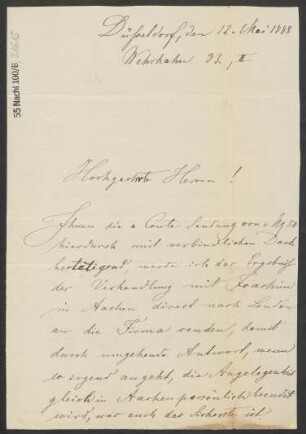 Düsseldorf, den 12. Mai 1888
Wehrhahn 33, II
55 Nachl 100/B
Hochgeehrte Herren!
Ihnen die a Conto-Sendung von
hierdurch mit verbindlichem Dank
bestätigend, werde ich das Ergebniß
der Verhandlung mit Joachim
in Aachen direct nach London
an die Firma senden, damit
durch umgehende Antwort, wenn
es irgend angeht, die Angelegenheit
gleich in Aachen persönlich beendet
wird, was auch das Sicherste ist.